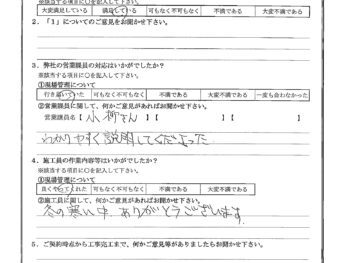 ※該当する項目に○を記入して下さい。
大変満足している 満足している 可もなく不可もなく 不満である 大変不満である
2．「1」についてのご意見をお聞かせ下さい。
3．弊社の営業課員の対応はいかがでしたか？
※該当する項目に○を記入して下さい。
①現場管理について
行き届いていた 可もなく不可もなく 不満である 大変不満である 一度も会わなかった
②営業課員に関して、何かご意見があればお聞かせ下さい。
営業課員名【 小柳さん 】【 】【
わかりやすく説明してくださった
4．施工員の作業内容等はいかがでしたか？
※該当する項目に○を記入して下さい。
①現場管理について
良くやってくれた 可もなく不可もなく 不満である 大変不満である
②施工員に関して、何かご意見があればお聞かせ下さい。
冬の寒い中ありがとうございます。
5．ご契約時点から工事完工まで、何かご意見等がありましたらお聞かせ下さい。